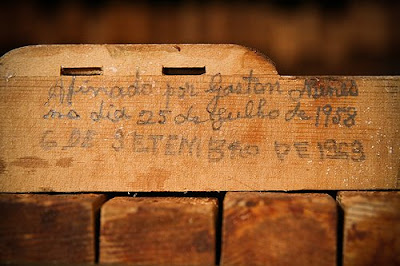 Afinado por Gaston Nunes
no dia 25 de Julho de 1958
6 DE SETEMBRO DE 1959